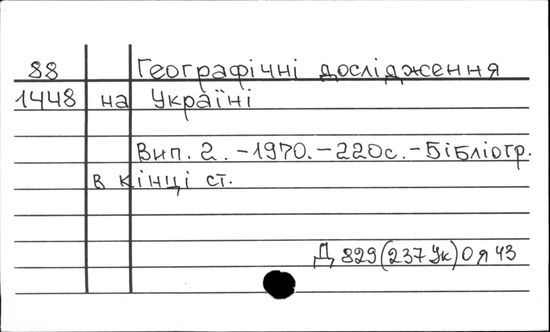 88 Географічні дослідження
1448 на Україні
Вип. 2. -1970.-220с.-Бібліогр.
в кінці ст.
Д 829(237Ук)0я43